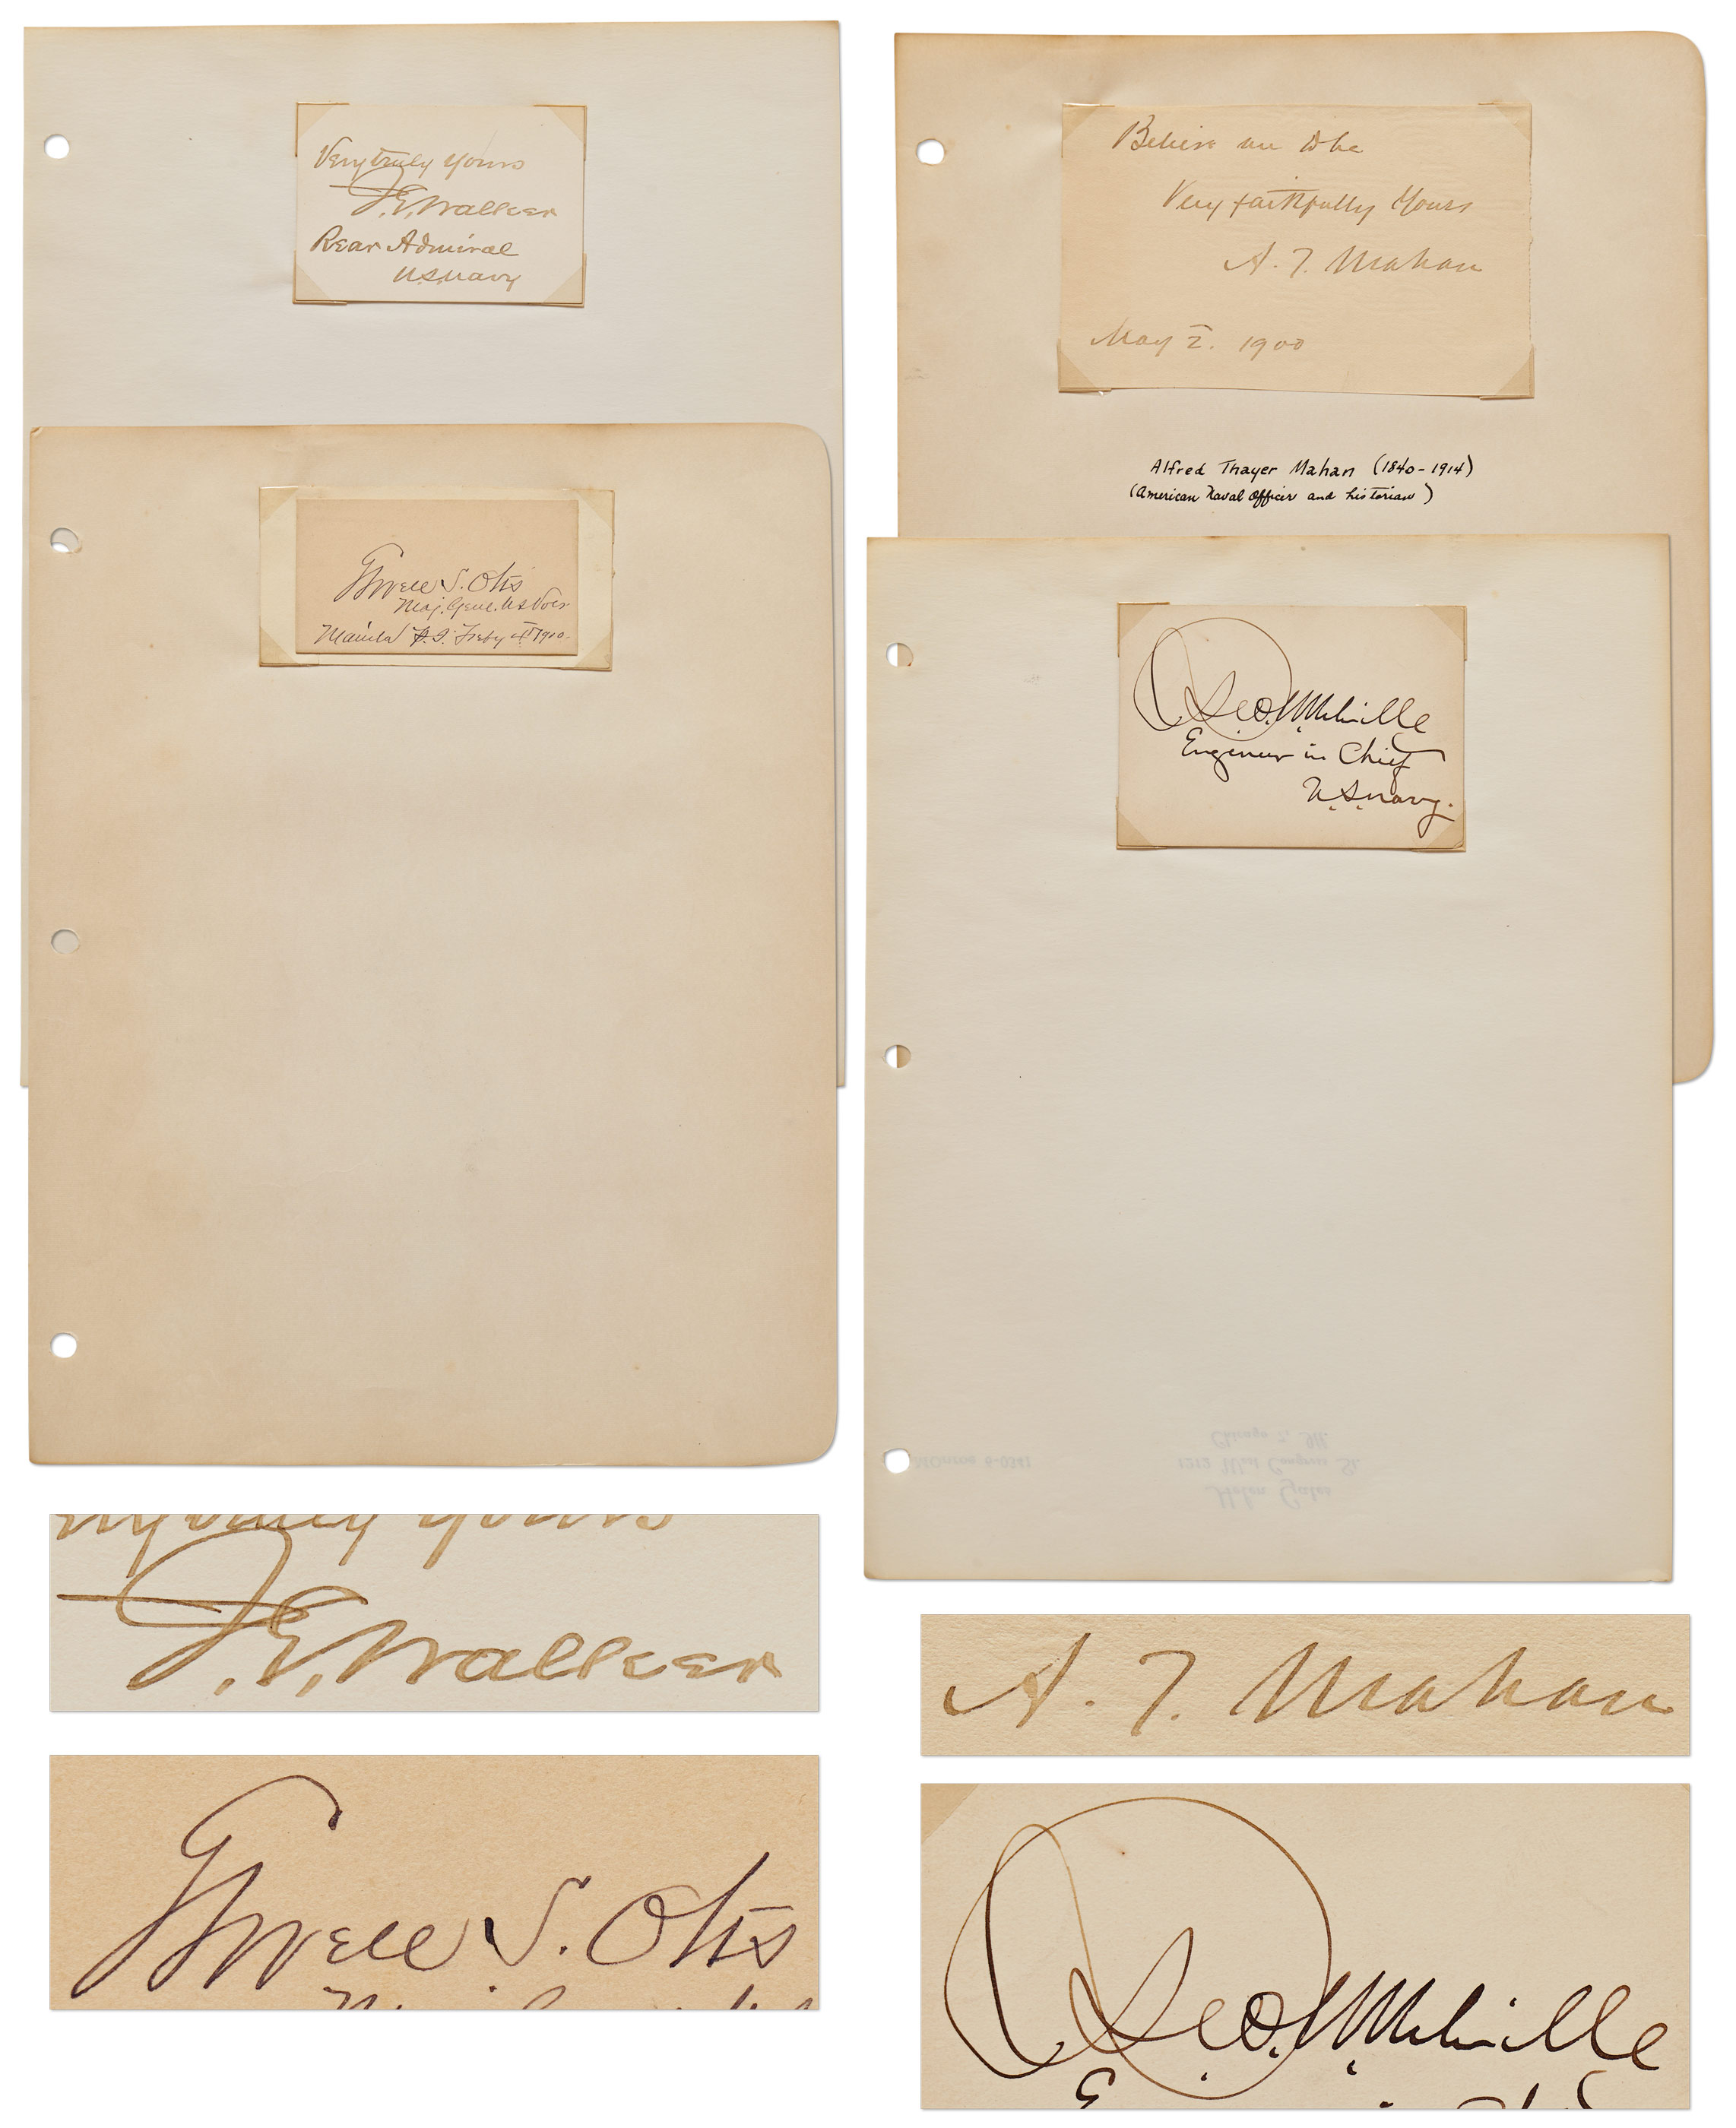 Very truly yours
J. G. Walker
Rear Admiral
U.S. Navy
Elwell S. Otis
Maj. Genl. U S Vols
Manila P. I. Feby 4th 1900.
Believe me to be
Very faithfully Yours
A. T. Mahan
May 2. 1900
Alfred Thayer Mahan (1840-1914)
(American Naval Officer and historian)
Geo. W. Melville
Engineer in Chief
U.S. Navy.
Helen Gates
1212 West Congress St.
MOnroe 6-0341
Chicago 7, Ill.
J. G. Walker
Elwell S. Otis
A. T. Mahan
Geo. W. Melville